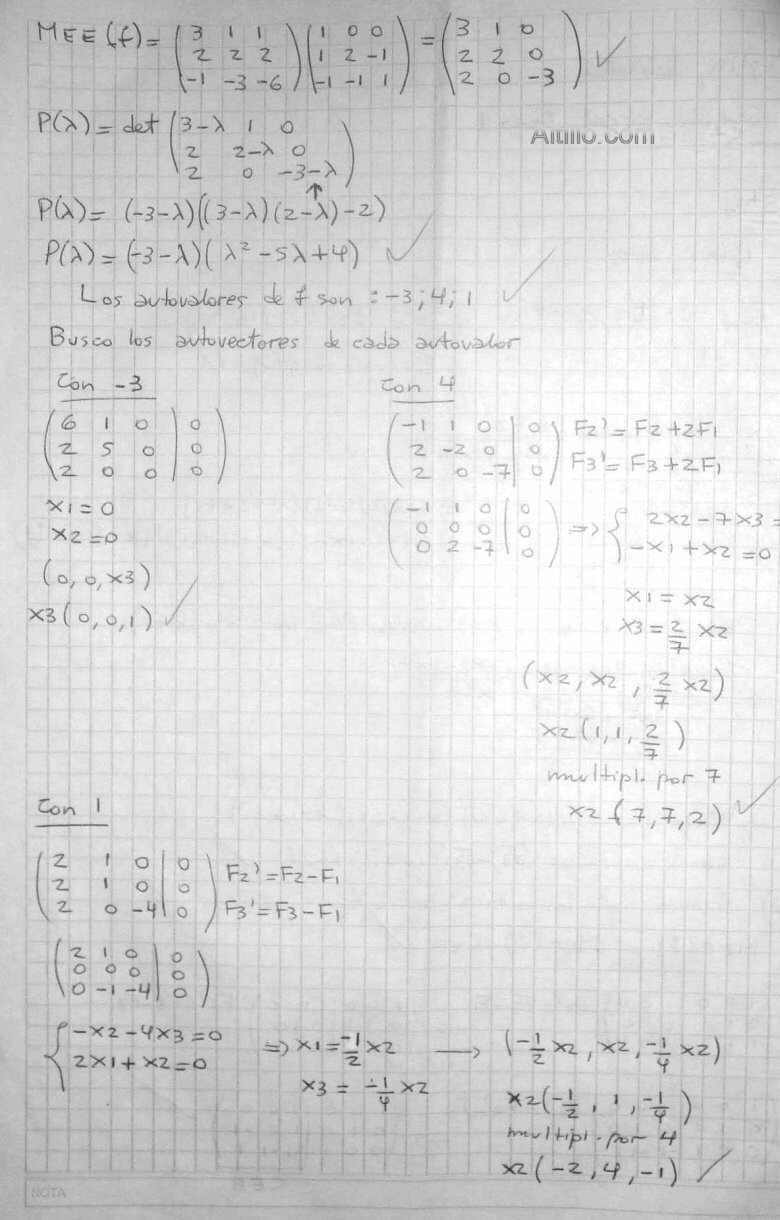 MEE(f) = (3 1 1 / 2 2 2 / -1 -3 -6) (1 0 0 / 1 2 -1 / -1 -1 1) = (3 1 0 / 2 2 0 / 2 0 -3) ✓
Altillo.com
P(λ) = det (3-λ 1 0 / 2 2-λ 0 / 2 0 -3-λ)
↑
P(λ) = (-3-λ)((3-λ)(2-λ)-2)
P(λ) = (-3-λ)(λ² -5λ+4) ✓
Los autovalores de f son : -3; 4; 1 ✓
Busco los autovectores de cada autovalor
Con -3
(6 1 0 | 0
2 5 0 | 0
2 0 0 | 0)
x1=0
x2=0
(0,0,x3)
x3(0,0,1) ✓
Con 4
(-1 1 0 | 0
2 -2 0 | 0
2 0 -7 | 0)
F2' = F2+2F1
F3' = F3+2F1
(-1 1 0 | 0
0 0 0 | 0
0 2 -7 | 0)
=> { 2x2-7x3=
-x1+x2=0
x1 = x2
x3 = 2/7 x2
(x2, x2, 2/7 x2)
x2(1,1, 2/7)
multipl. por 7
x2 (7,7,2) ✓
Con 1
(2 1 0 | 0
2 1 0 | 0
2 0 -4 | 0)
F2'=F2-F1
F3'=F3-F1
(2 1 0 | 0
0 0 0 | 0
0 -1 -4 | 0)
{ -x2-4x3=0
2x1+x2=0
=> x1=-1/2 x2
x3 = -1/4 x2
→ (-1/2 x2, x2, -1/4 x2)
x2(-1/2, 1, -1/4)
multipl. por 4
x2(-2,4,-1) ✓
NOTA